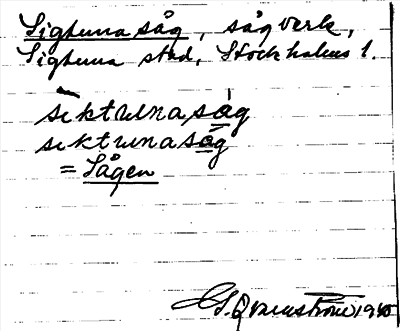 Sigtuna såg, sågverk,
Sigtuna stad, Stockholms l.
siktunasåg
siktunasåg
= Sågen
1940